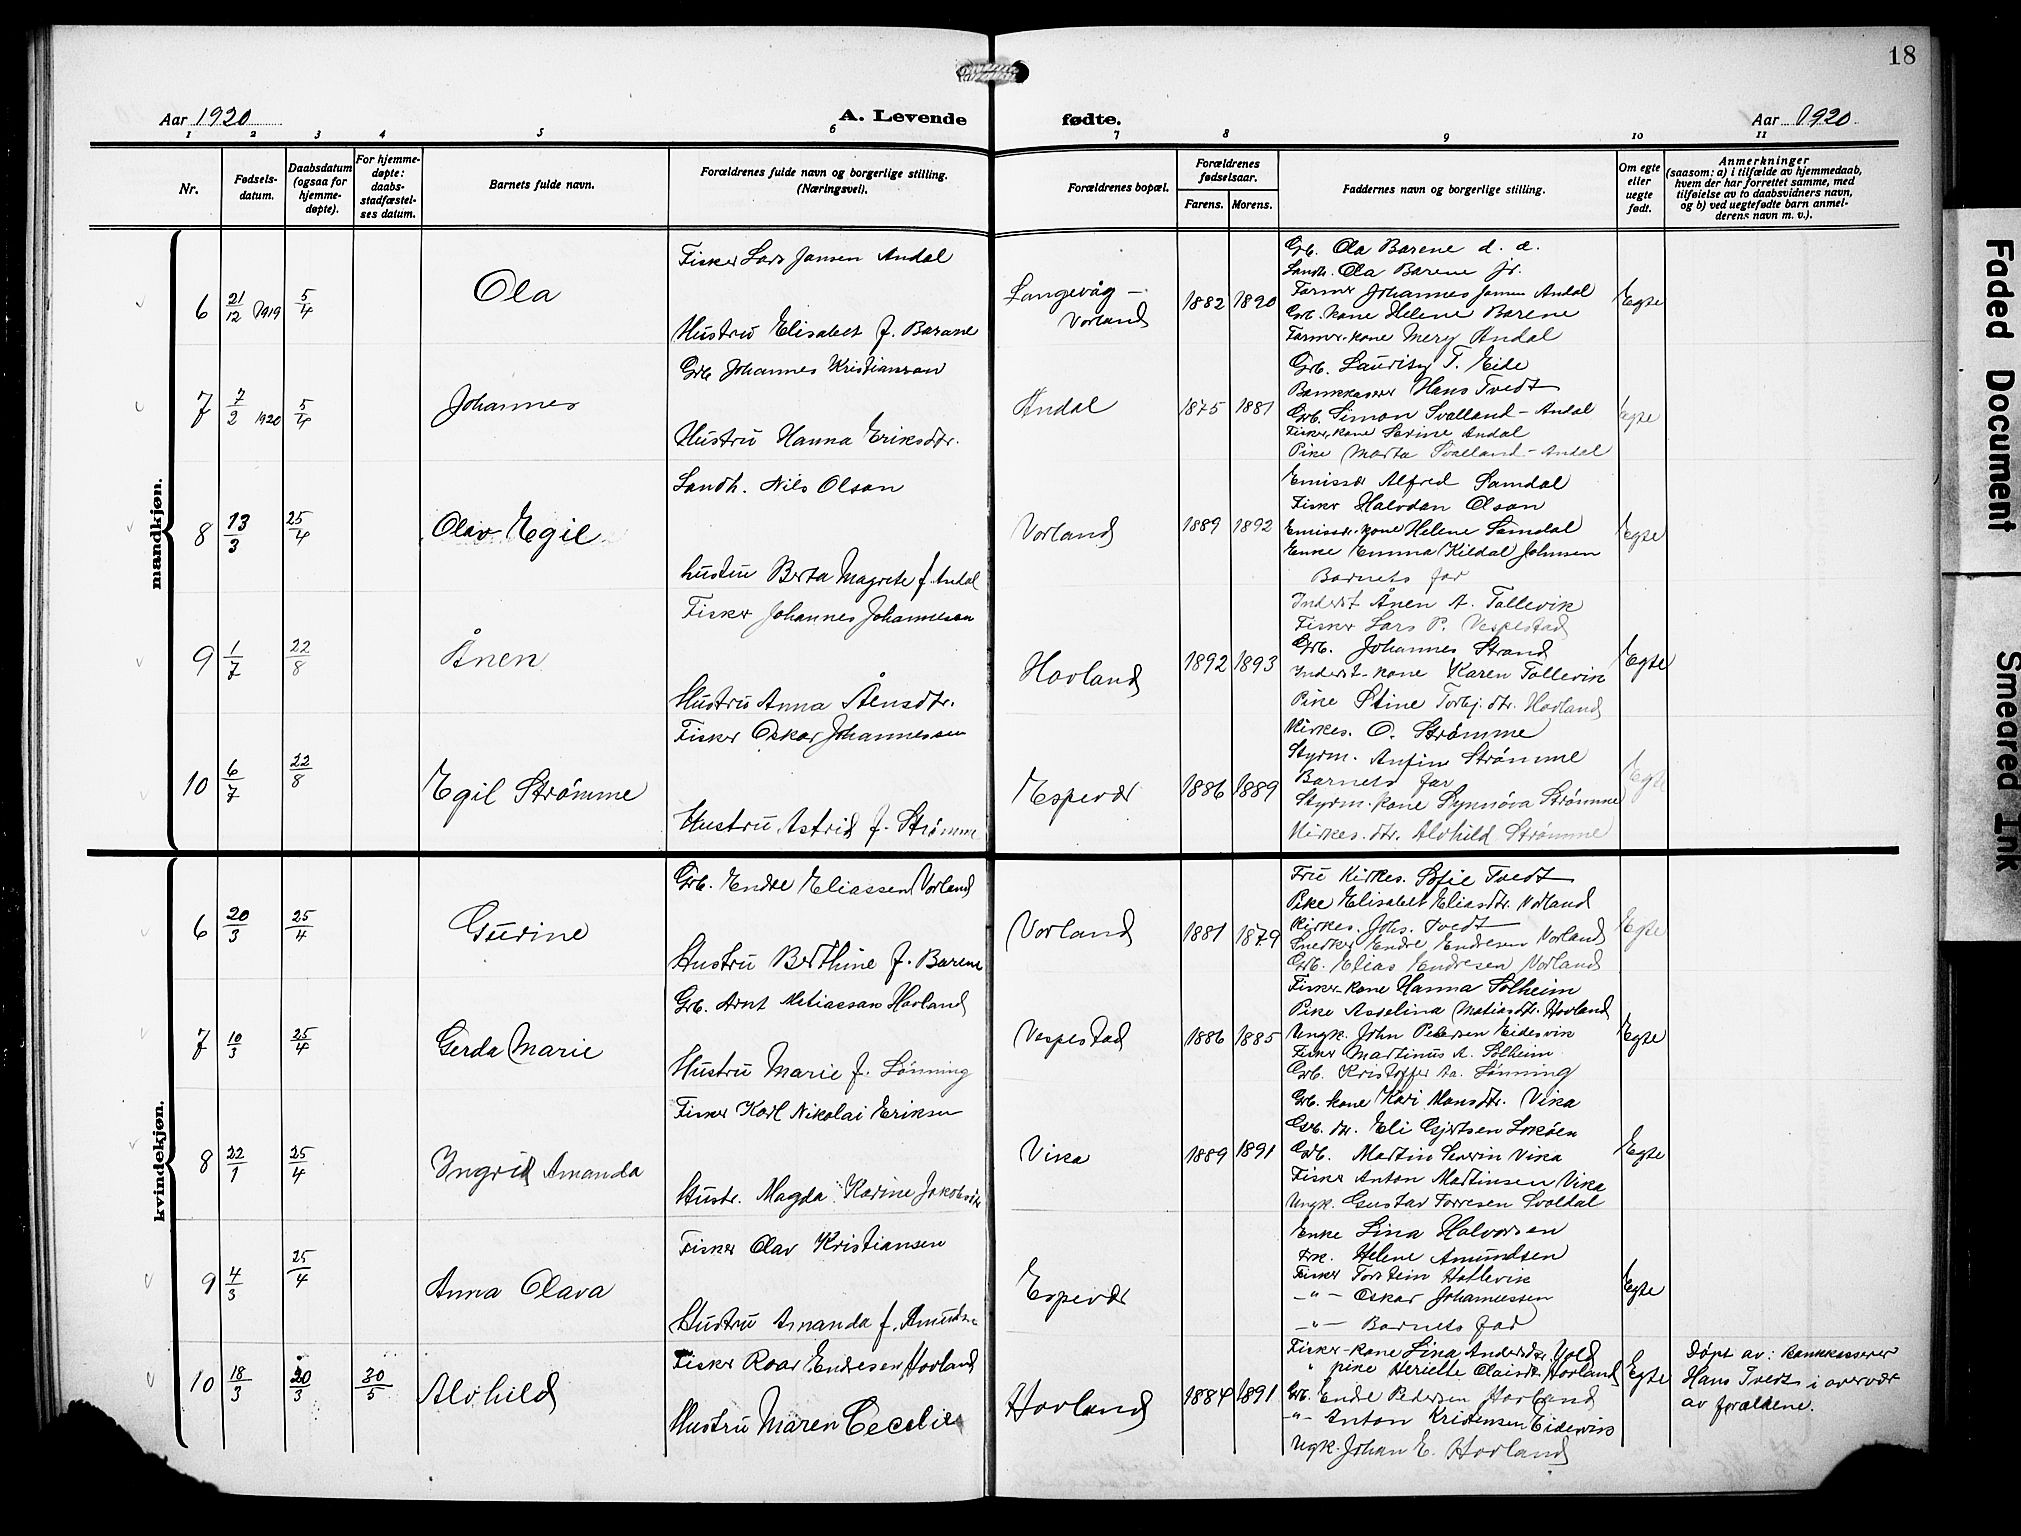 18
Aar 1920
A. Levende
fødte.
Aar 1920
1 2 3 4 5 6 7 8 9 10 11
Nr.
Fødsels-
datum.
Daabsdatum
(ogsaa for
hjemme-
døpte).
For hjemme-
døpte:
daabs-
stadfæstel-
ses datum.
Barnets fulde navn.
Forældrenes fulde navn og borgerlige stilling.
(Næringsvei).
Forældrenes bopæl.
Forældrenes
fødselsaar.
Farens. Morens.
Faddernes navn og borgerlige stilling.
Om egte
eller
uegte
født.
Anmerkninger
(saasom: a) i tilfælde av hjemmedaab,
hvem der har forrettet samme, med
tilføielse av to daabsvidners navn,
og b) ved uegtefødte barn anmel-
derens navn m. v.).
mandkjøn.
6 21/12 1919 5/4
Ola
Fisker Lars Jansen Andal
Hustru Elisabet f. Barane
Langevåg -
Vorland
1882 1890
Grb. Ola Barene d. æ.
Landh. Ola Barene jr.
Farmer Johannes Jansen Andal
Grb. kone Helene Barene
Farmer-kone Mery Andal
Egte
7 7/2 1920 5/4
Johannes
Grb Johannes Kristianson
Hustru Hanna Eriksdtr.
Andal
1875 1881
Grb. Lauritz T. Eide
Bankkaserer Hans Tvedt
Grb. Simon Svalland - Andal
Fisker, kone Serine Andal
Pike Marta Svalland - Andal
Egte
8 13/3 25/4
Olav Egil
Landh. Nils Olson
hustru Berta Magrete f. Andal
Vorland
1889 1892
Emissær Alfred Samdal
Fisker Halvdan Olson
Emissær-kone Helene Samdal
Enke Emma Kildal Johnsen
Barnets far
Egte
9 1/7 22/8
Ånen
Fisker Johannes Johannesen
Hustru Anna Ånensdtr.
Hovland
1892 1893
Inderst Ånen A. Tollevik
Fisker Lars P. Vespestad
Grb. Johannes Strand
Inderst-kone Karen Tollevik
Pike Stine Torbj.dtr. Hovland
Egte
10 6/7 22/8
Egil Strømme
Fisker Oskar Johannessen
Hustru Astrid f. Strømme
Espevær
1886 1889
Kirkes. O. Strømme
Styrm. Anfin Strømme
Barnets far
Styrm. kone Synnøva Strømme
Kirkes. dtr. Alvhild Strømme
Egte
kvindekjøn.
6 20/3 25/4
Gurine
Grb. Endre Eliassen Vorland
Hustru Berthine f. Barene
Vorland
1881 1879
Fru Kirkes. Sofie Tvedt
Pike Elisabet Eliasdtr. Vorland
Kirkes. Johs. Tvedt
Snedker Endre Endresen Vorland
Grb. Elias Endresen Vorland
Egte
7 10/3 25/4
Gerda Marie
Grb. Arnt Matiassan Hovland
Hustru Marie f. Lønning
Vespestad
1886 1885
Fisker-kone Hanna Solheim
Pike Asselina Matiasdtr. Hovland
Ungk. John Petersen Eidesvik
Fisker Martinus A. Solheim
Grb. Kristoffer Aa. Lønning
Egte
8 22/1 25/4
Ingrid Amanda
Fisker Karl Nikolai Eriksen
Hustr. Magda Karine Jakobsdtr
Vika
1889 1891
Grb. kone Kari Monsdtr. Vika
Grb. dtr. Eli Gjertsen
Grb. Martin Severin Vika
Fisker Anton Martinsen Vika
Ungk. Gustav Torresen Svoldal
Egte
9 4/3 25/4
Anna Olava
Fisker Olav Kristiansen
Hustru Amanda f. Amundsen
Espevær
Enke Lina Halvorsen
Frk. Helene Amundsen
Fisker Torstein Hatlevik
-"- Oskar Johannessen
-"- Barnets far
Egte
10 18/3 20/3 30/5
Alvhild
Fisker Roar Endresen Hovland
Hustru Maren Cecelie
Hovland
1884 1891
Fisker-kone Lina Andersdtr.
" pike Heriette Olaisdtr Hovland
Grb. Endre Pedersen Hovland
-"- Anton Kristensen Eidesvik
Ungk. Johan E. Hovland
Egte
Døpt av: Bankkasserer
Hans Tvedt i overvær
av forældrene.
Faded Document
Smeared Ink